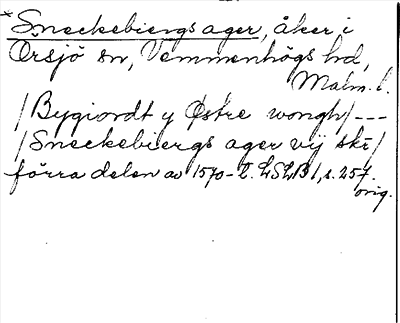 *Sneckebiergs ager, åker i
Örsjö sn, Vemmenhögs hd,
Malm. l.
/Bygiordt y Østre wongh/ ---
/Sneckebiergs ager vij skr/
förra delen av 1570-t. LSLB 1, s. 257.
orig.